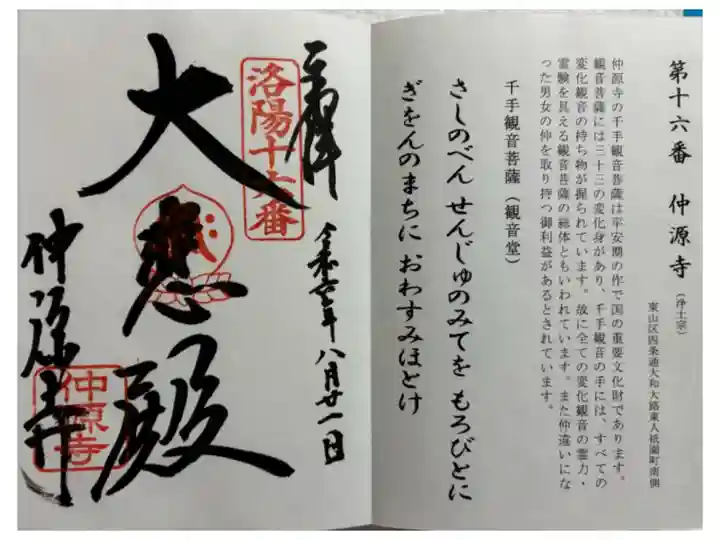 第十六番 仲源寺(浄土宗)
東山区四条通大和大路東入祇園町南側
仲源寺の千手観音菩薩は平安期の作で国の重要文化財であります。
観音菩薩には三十三の変化身があり、千手観音の手には、すべての
変化観音の持ち物が握られています。故に全ての変化観音の霊力・
霊験を具える観音菩薩の総体ともいわれています。また仲違いにな
った男女の仲を取り持つ御利益があるとされています。
千手観音菩薩(観音堂)
さしのべん せんじゅのみてを もろびとに
ぎをんのまちに おわすみほとけ
奉拝
洛陽十六番
令和六年八月廿一日
大悲殿
仲源寺
仲源寺